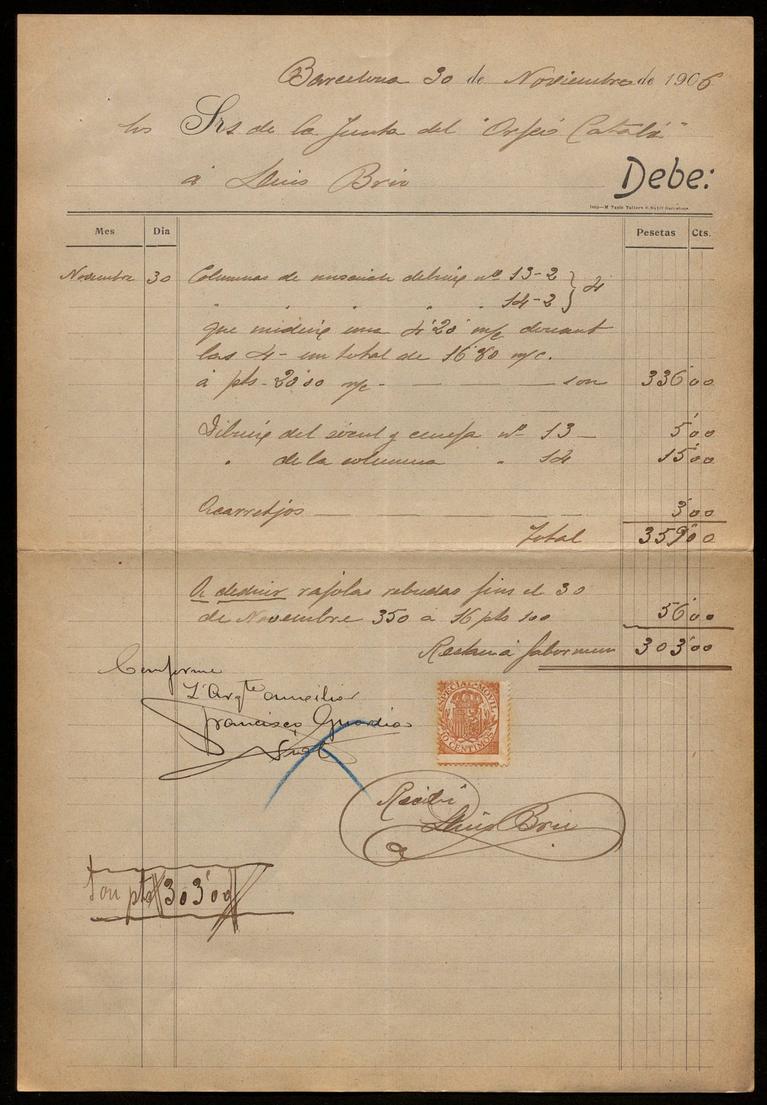 Barcelona 30 de Noviembre de 1906
los Srs de la Junta del "Orfeó Catalá"
á Lluis Bru
Debe:
Mes Dia Pesetas Cts.
Noviembre 30 Columnas de dibuix nº 13-2 } 4
" " " " 14-2
que una 4'20 m/c donant
las 4 - un total de 16'80 m/c.
á pts - 20'00 m/c - son 336'00
Dibuix del y cenefa nº 13 - 5'00
" de la columna " 14 15'00
Acarretjos 3'00
Total 359'00
A deduir rajolas rebudas fins el 30
de Novembre 350 á 16 pts 100 56'00
Restan á favor meu 303'00
Conforme
L'Arqte auxiliar
Francisco Guardia
Vial
ESPECIAL MOVIL
10 CENTIMOS
Recibí
Lluis Bru
Son pts 303'00